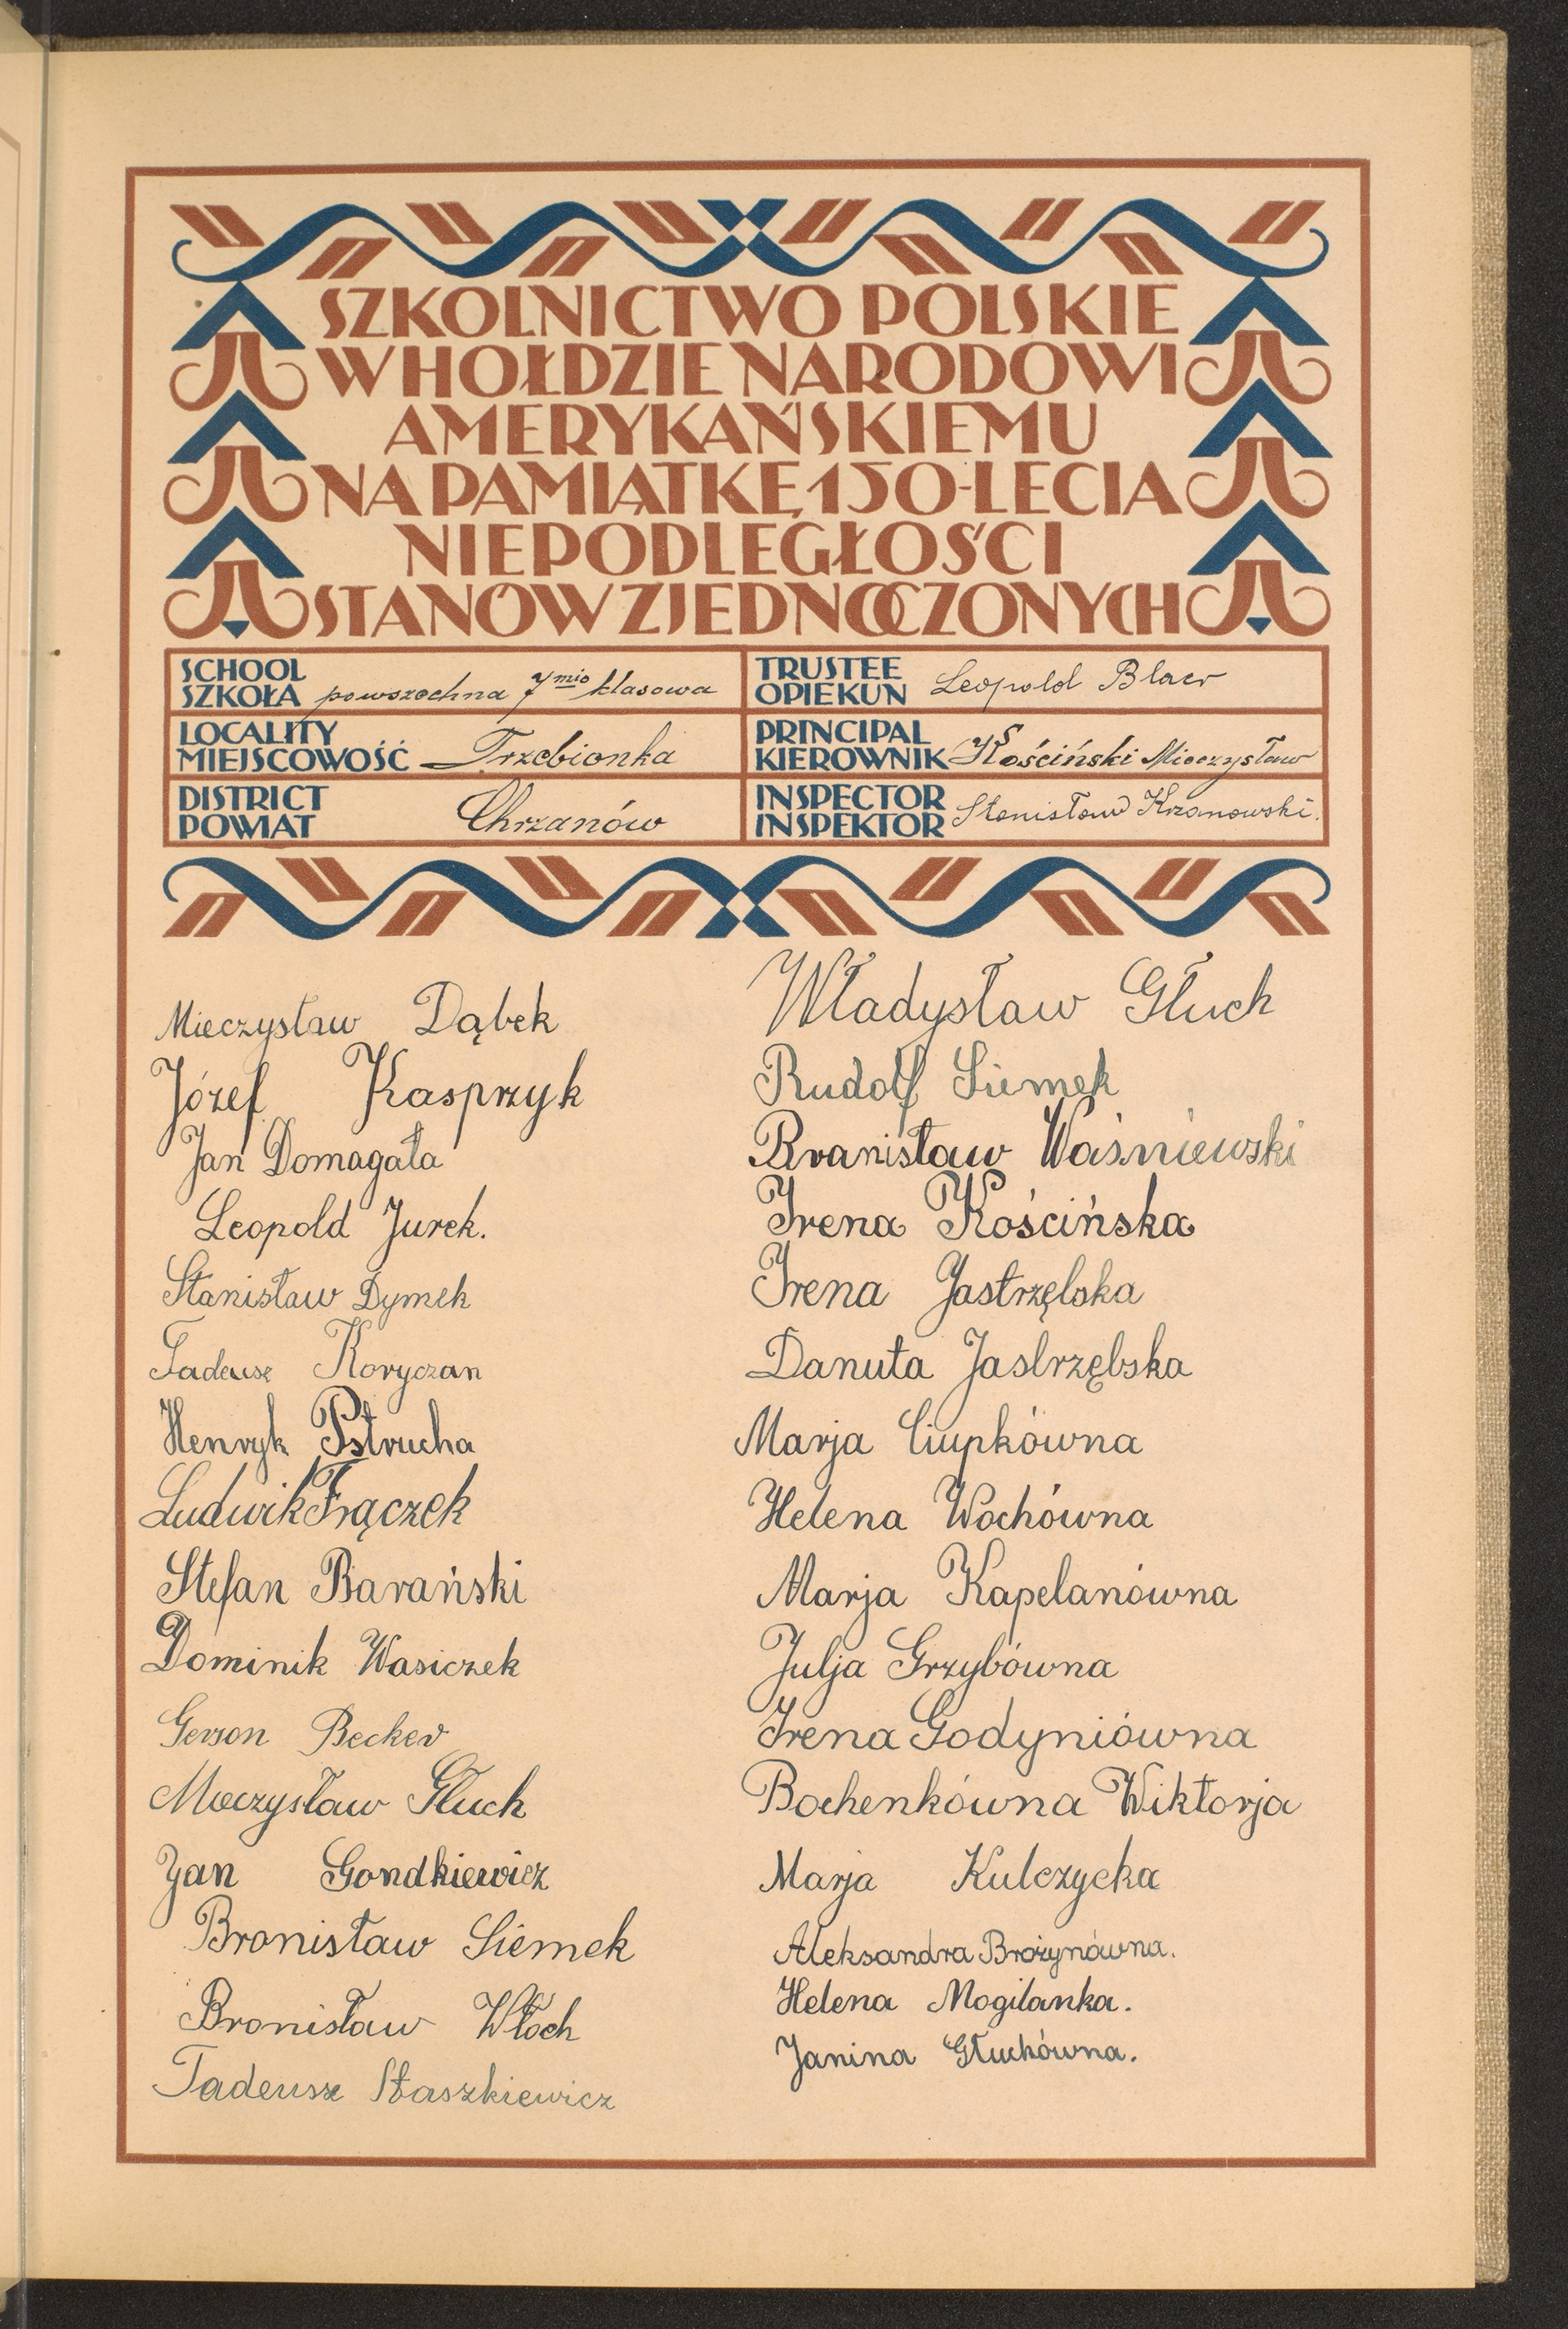 SZKOLNICTWO POLSKIE
W HOŁDZIE NARODOWI
AMERYKAŃSKIEMU
NA PAMIĄTKĘ 150-LECIA
NIEPODLEGŁOŚCI
STANÓW ZJEDNOCZONYCH
SCHOOL
SZKOŁA powszechna 7mio klasowa
TRUSTEE
OPIEKUN Leopold Blaer
LOCALITY
MIEJSCOWOŚĆ Trzebionka
PRINCIPAL
KIEROWNIK Kościński Mieczysław
DISTRICT
POWIAT Chrzanów
INSPECTOR
INSPEKTOR Stanisław Krzanowski.
Mieczysław Dąbek
Józef Kasprzyk
Jan Domagała
Leopold Jurek.
Stanisław Dymek
Tadeusz Koryczan
Henryk Pstrucha
Ludwik Frączek
Stefan Barański
Dominik Wasiczek
Gerson Becker
Mieczysław Głuch
Jan Gondkiewicz
Bronisław Siemek
Bronisław Włoch
Tadeusz Staszkiewicz
Władysław Głuch
Rudolf Siemek
Bronisław Waśniewski
Irena Kościńska
Irena Jastrzębska
Danuta Jastrzębska
Marja Ciupkówna
Helena Wochówna
Marja Kapelanówna
Julja Grzybówna
Irena Godyniówna
Bochenkówna Wiktorja
Marja Kulczycka
Aleksandra Brożynówna.
Helena Mogilanka.
Janina Głuchówna.